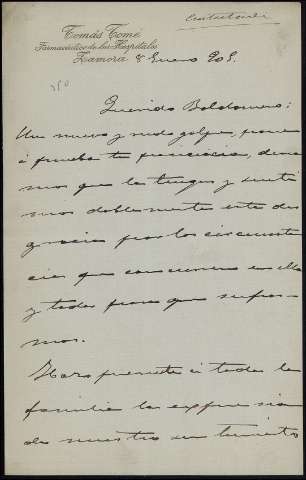 Contestada
Tomás Tomé
Farmacéutico de los Hospitales
Zamora 8 Enero 905.
Querido Baldomero:
Un nuevo y rudo golpe, pone
á prueba tu paciencia, desea
mos que la tengas y senti
mos doblemente esta des
gracia por las circunstan
cias que concurren en ella
y todos para que sufra-
mos.
Haz presente á toda la
familia la expresion
de nuestro sentimiento